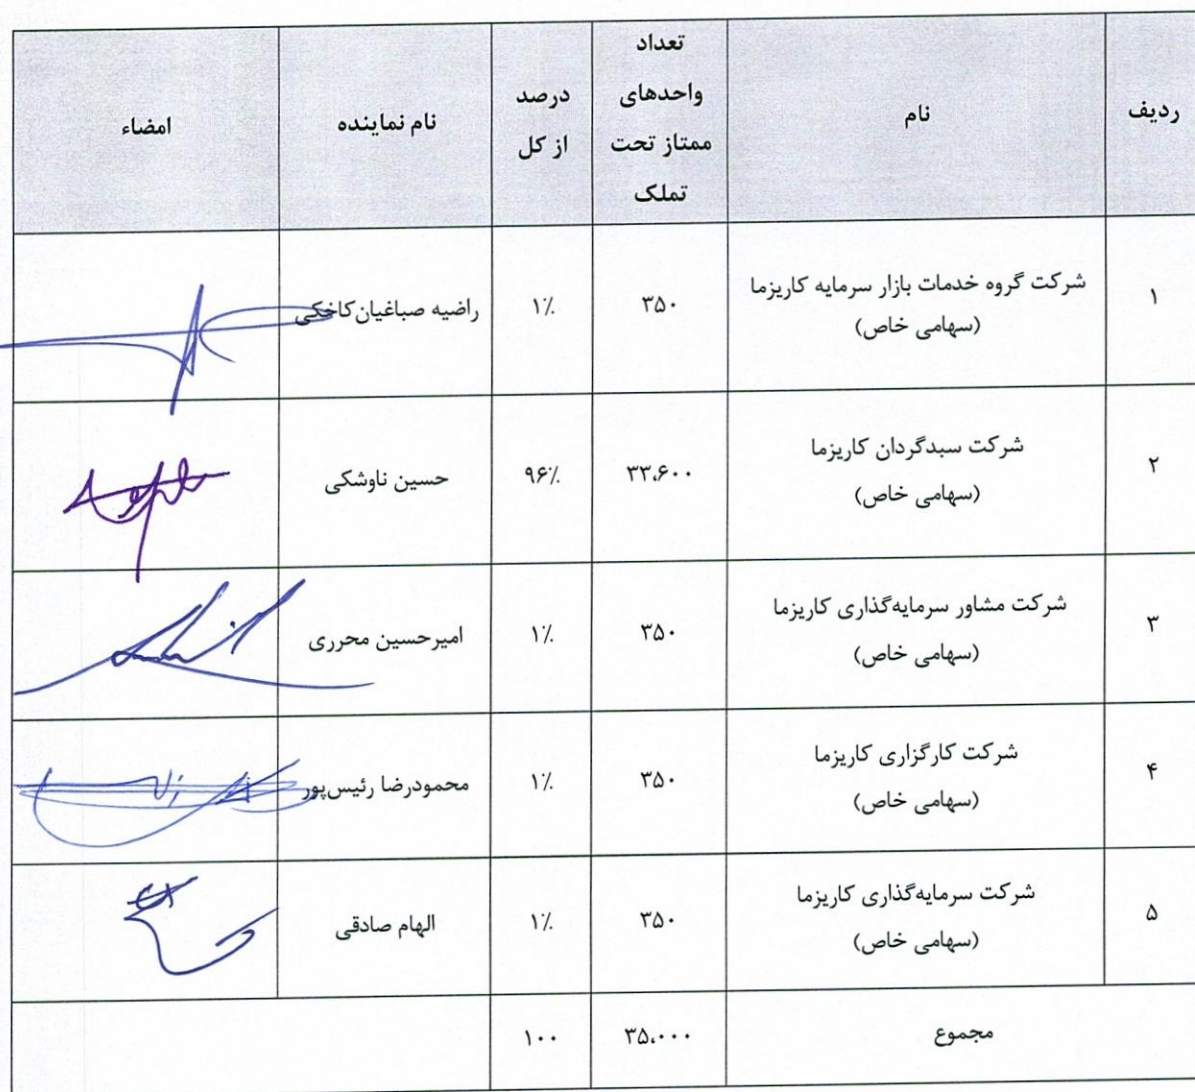 ردیف
نام
تعداد
واحدهای
ممتاز تحت
تملک
درصد
از کل
نام نماینده
امضاء
۱
شرکت گروه خدمات بازار سرمایه کاریزما
(سهامی خاص)
۳۵۰
۱٪
راضیه صباغیان‌کاخکی
۲
شرکت سبدگردان کاریزما
(سهامی خاص)
۳۳،۶۰۰
۹۶٪
حسین ناوشکی
۳
شرکت مشاور سرمایه‌گذاری کاریزما
(سهامی خاص)
۳۵۰
۱٪
امیرحسین محرری
۴
شرکت کارگزاری کاریزما
(سهامی خاص)
۳۵۰
۱٪
محمودرضا رئیس‌پور
۵
شرکت سرمایه‌گذاری کاریزما
(سهامی خاص)
۳۵۰
۱٪
الهام صادقی
مجموع
۳۵،۰۰۰
۱۰۰